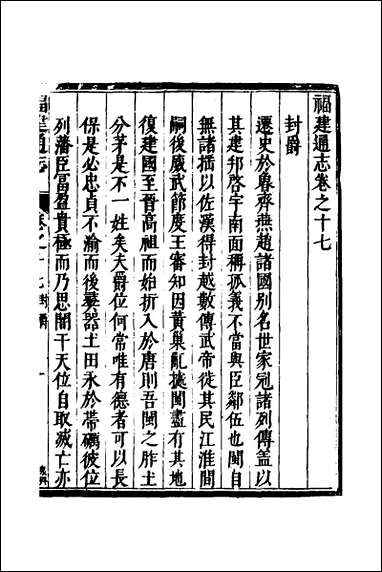 福建通志卷之十七
封爵
遷史於魯齊燕趙諸國别名世家冠諸列傳蓋以
其建邦啓宇南面稱孤義不當與臣鄰伍也閩自
無諸搖以佐漢得封越數傳武帝徙其民江淮間
嗣後威武節度王審知因黄巢亂據閩盡有其地
復建國至晉高祖而始折入於唐則吾閩之胙土
分茅是不一姓矣夫爵位何常唯有德者可以長
保是必忠貞不渝而後彝器土田永於帯礪彼位
列藩臣富盈貴極而乃思闇干天位自取滅亡亦
福建通志
卷之十七
封爵
一